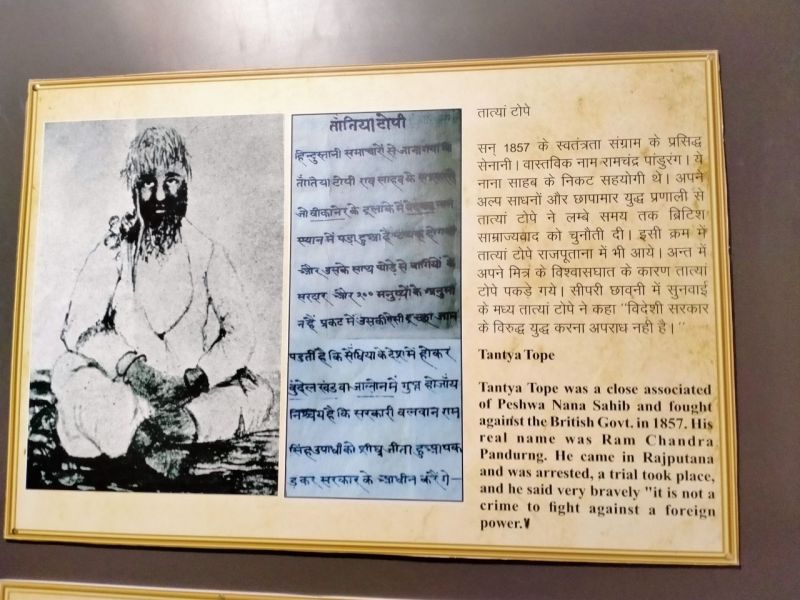 तांतिया टोपी
हिन्दुस्तानी समाचारों से जाना गया
तांतिया टोपी राव साहब के
जो बीकानेर के इलाके में
स्थान में पड़ा हुआ है
और उसके साथ थोड़े से बागियों के
सरदार और २०० मनुष्यों के अनुमान
पड़ती है कि सेंधिया के देश में होकर
बुंदेलखंड वा जालौन में गुप्त हो जाय
निश्चय है कि सरकारी बलवान राम
सिंह उपाधी को शीघ्र जीता हुआ पक
ड़ कर सरकार के आधीन करेंगे—
तात्यां टोपे
सन् 1857 के स्वतंत्रता संग्राम के प्रसिद्ध
सेनानी। वास्तविक नाम रामचंद्र पांडुरंग। ये
नाना साहब के निकट सहयोगी थे। अपने
अल्प साधनों और छापामार युद्ध प्रणाली से
तात्यां टोपे ने लम्बे समय तक ब्रिटिश
साम्राज्यवाद को चुनौती दी। इसी क्रम में
तात्यां टोपे राजपूताना में भी आये। अन्त में
अपने मित्र के विश्वासघात के कारण तात्यां
टोपे पकड़े गये। सीपरी छावनी में सुनवाई
के मध्य तात्यां टोपे ने कहा "विदेशी सरकार
के विरुद्ध युद्ध करना अपराध नही है।"
Tantya Tope
Tantya Tope was a close associated
of Peshwa Nana Sahib and fought
against the British Govt. in 1857. His
real name was Ram Chandra
Pandurng. He came in Rajputana
and was arrested, a trial took place,
and he said very bravely "it is not a
crime to fight against a foreign
power.